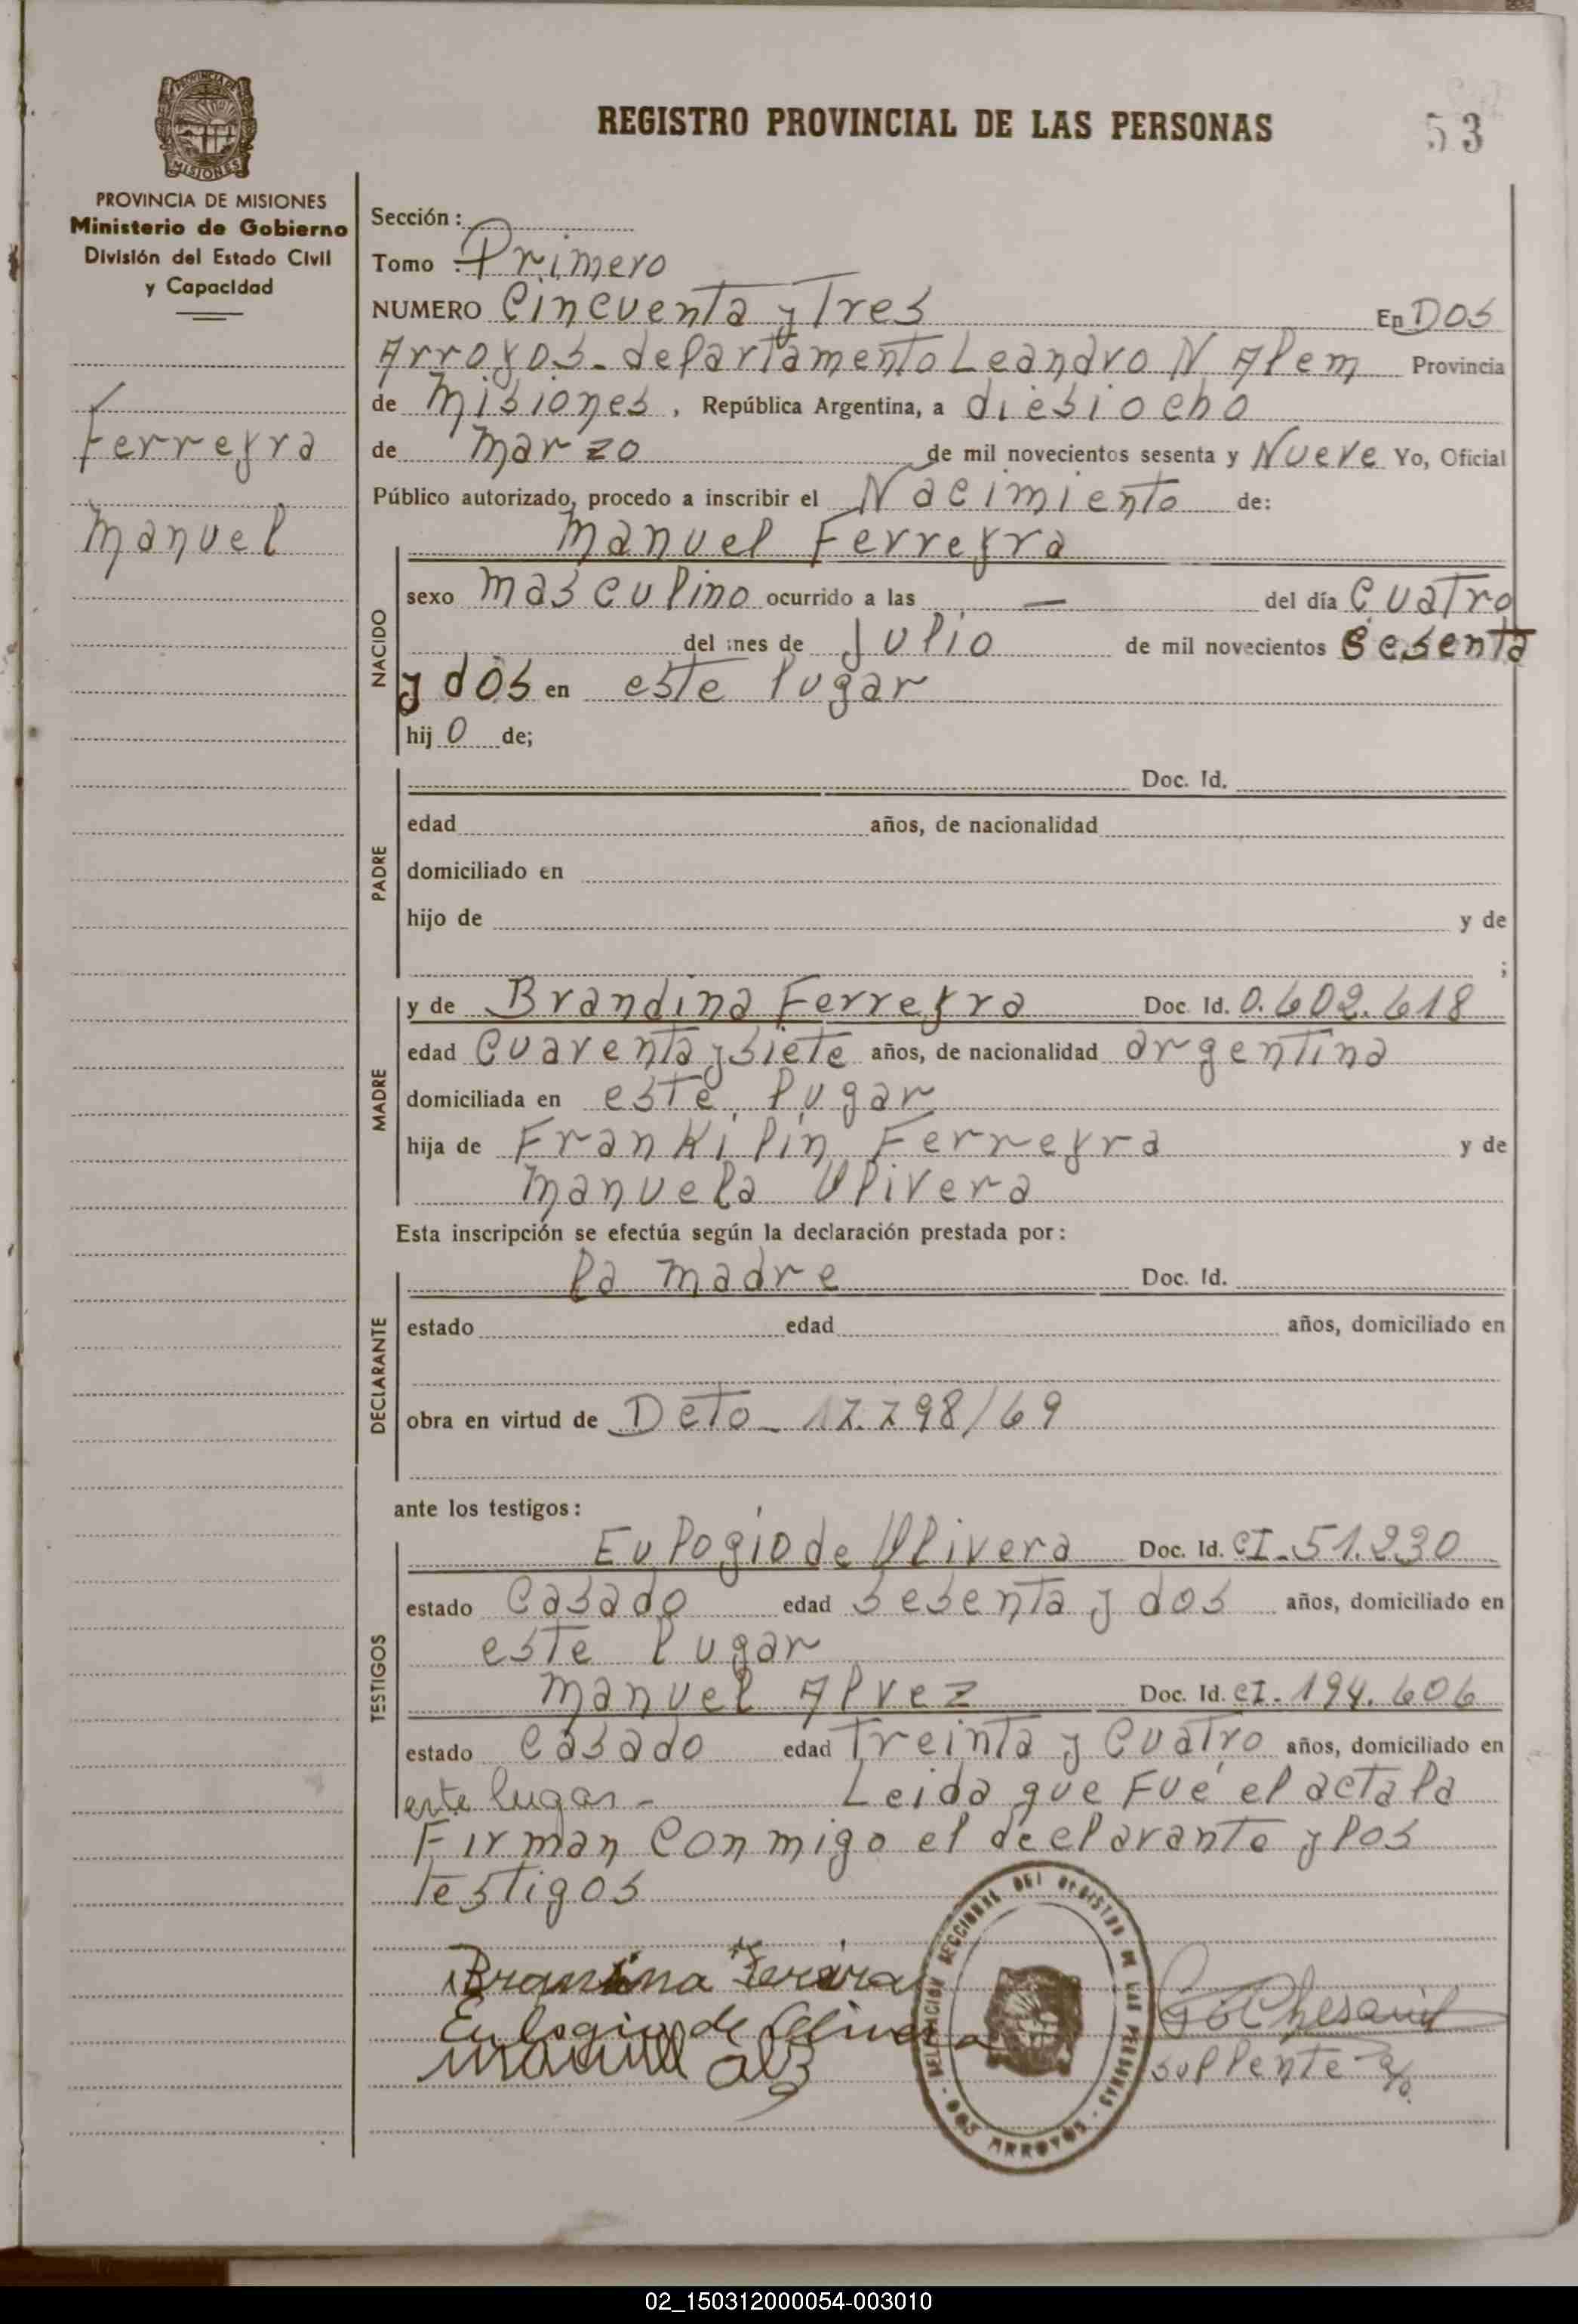 REGISTRO PROVINCIAL DE LAS PERSONAS
53
PROVINCIA DE MISIONES
Ministerio de Gobierno
División del Estado Civil
y Capacidad
Ferreyra
Manuel
Sección :
Tomo : Primero
NUMERO Cincuenta y Tres En Dos
Arroyos - departamento Leandro N Alem Provincia
de Misiones, República Argentina, a diesiocho
de Marzo de mil novecientos sesenta y Nueve Yo, Oficial
Público autorizado, procedo a inscribir el Nacimiento de:
Manuel Ferreyra
NACIDO
sexo masculino ocurrido a las — del día Cuatro
del mes de Julio de mil novecientos Sesenta
y dos en este lugar
hijo de;
PADRE
Doc. Id.
edad años, de nacionalidad
domiciliado en
hijo de y de
;
MADRE
y de Brandina Ferreyra Doc. Id. 0.602.618
edad Cuarenta y siete años, de nacionalidad argentina
domiciliada en este lugar
hija de Frankilin Ferreyra y de
Manuela Olivera
Esta inscripción se efectúa según la declaración prestada por:
DECLARANTE
la madre Doc. Id.
estado edad años, domiciliado en
obra en virtud de Deto - 17.798/69
ante los testigos:
TESTIGOS
Eulogio de Olivera Doc. Id. CI - 51.230
estado Casado edad sesenta y dos años, domiciliado en
este lugar
Manuel Alvez Doc. Id. CI - 194.606
estado Casado edad Treinta y Cuatro años, domiciliado en
este lugar - Leida que Fué el acta la
Firman Conmigo el declarante y los
Testigos
Eulogio de Olivera
suplente
DELEGACION SECCIONAL DEL REGISTRO DE LAS PERSONAS - DOS ARROYOS -
02_150312000054-003010